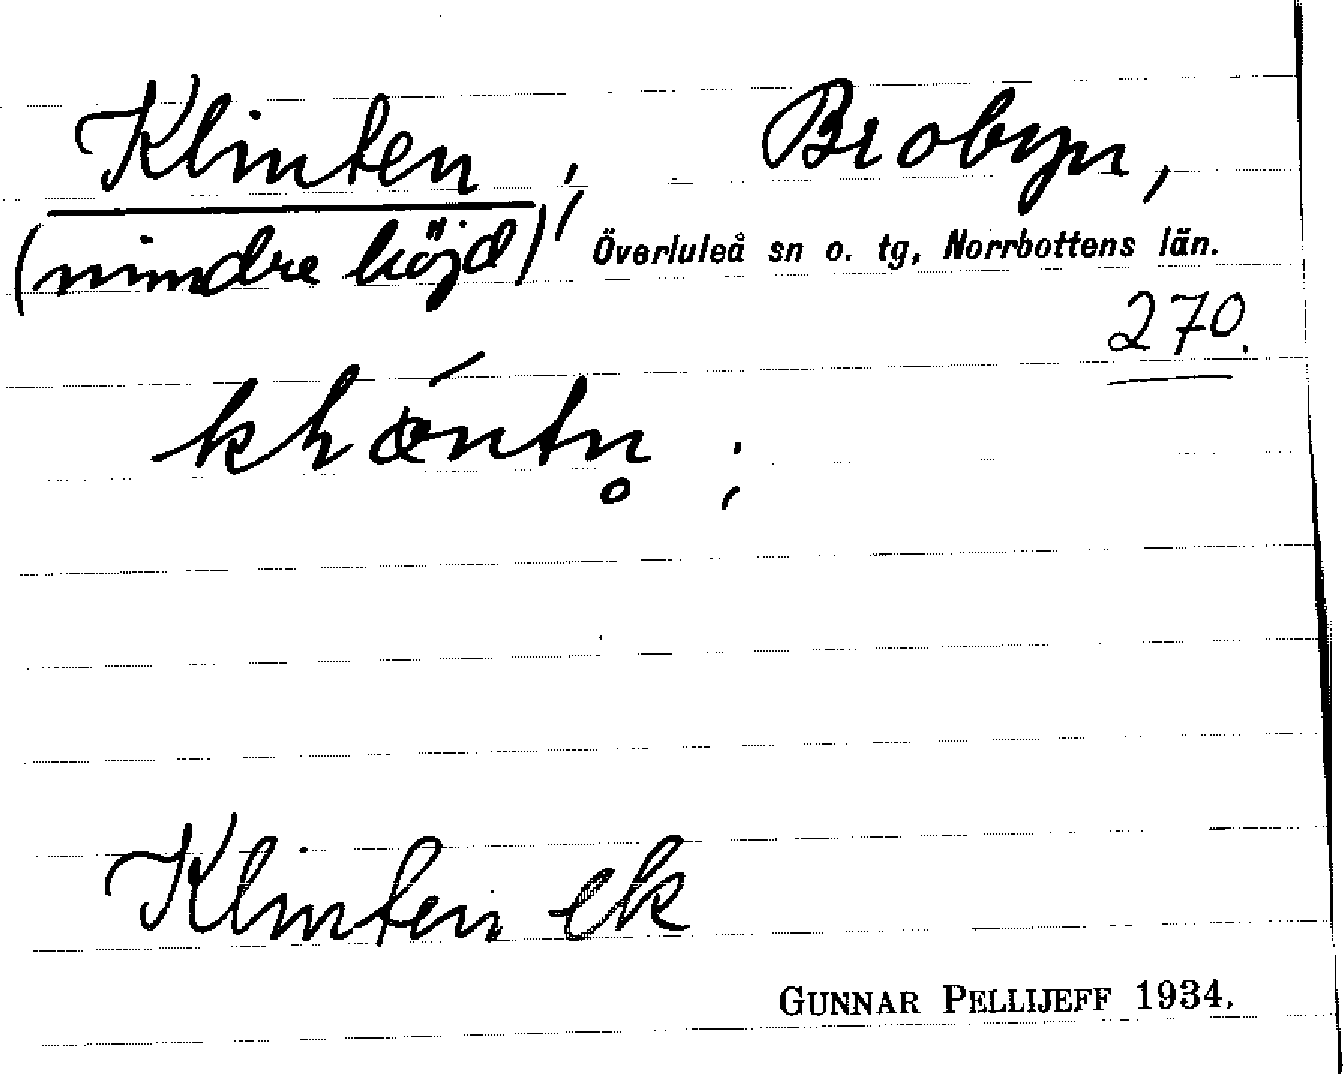 Klinten; Brobyn,
(mindre höjd), Överluleå sn o. tg, Norrbottens län.
270.
Klinten ek
GUNNAR PELLIJEFF 1934.